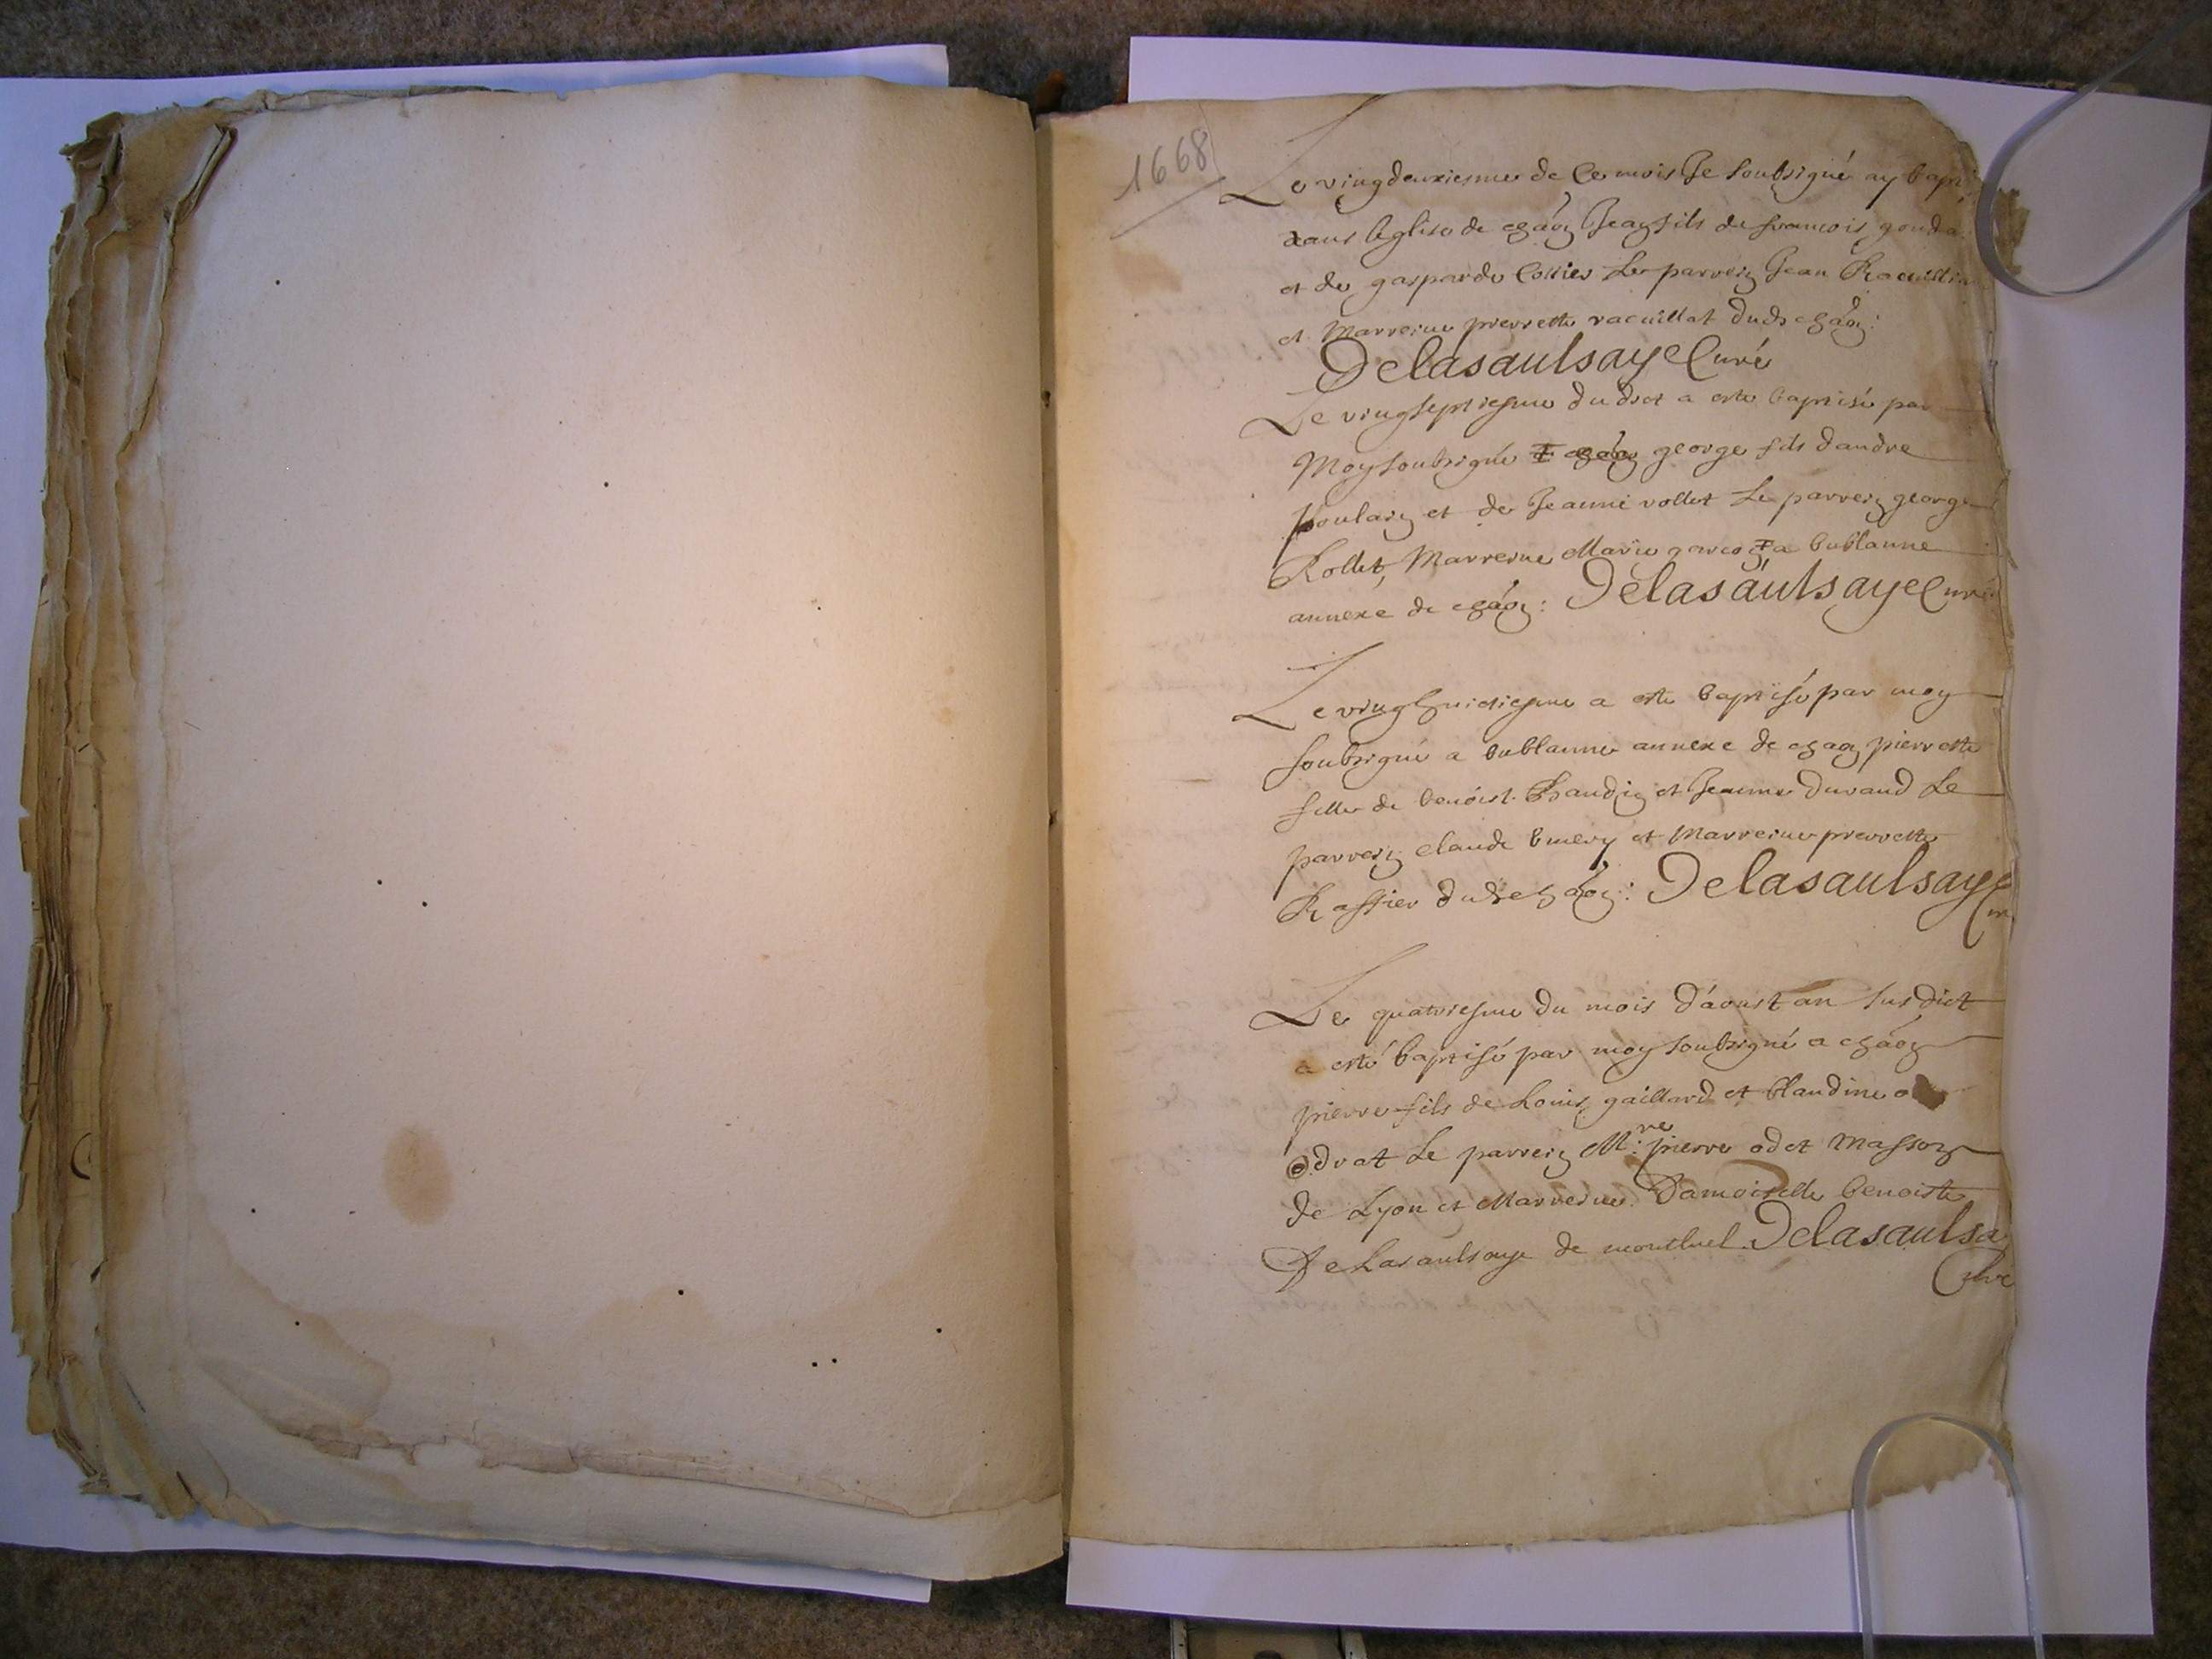 1668
Le vingdeuxiesme de ce mois Je soubsigné ay bapt
dans leglise de chaõ Jean fils de francois gonda
et de gasparde Cottier Le parrein Jean Racuillia
et Marreine pierrette racuillat dudt chaõ:
Delasaulsaye Curé
Le vingseptiesme dudict a este baptisé par
Moy soubsigné george fils dandre
poulain et de Jeanne vollet Le parrein george
Rollet, Marreine Marie a bublanne
annexe de chaõ: Delasaulsaye Curé
Le vinghuictiesme a este baptisé par moy
soubsigné a bublanne annexe de chaõ pierrette
fille de benoist et Jeanne Durand Le
parrein claude et Marreine pierrette
dudt chaõ: Delasaulsaye
Cu
Le quatriesme du mois d'aoust an susdict
a esté baptisé par moy soubsigné a chaõ
pierre fils de Louis gaillard et blandine o
odrat Le parrein M.re pierre odet Masson
de Lyon et Marreine Damoiselle benoiste
De Lasaulsaye de montluel Delasaulsa
Curé